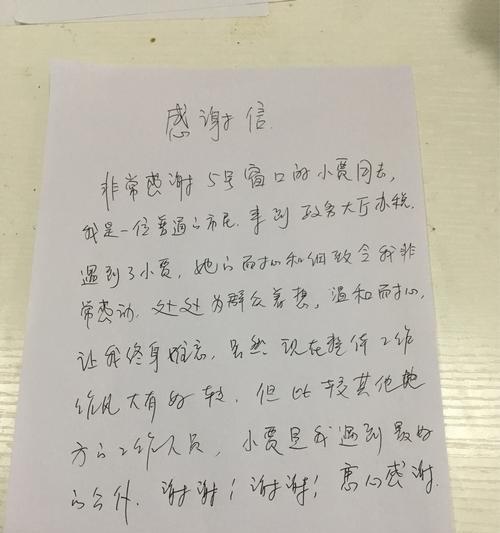 感谢信
非常感谢5号窗口的小贾同志,
我是一位普通的市民.来到政务大厅办税.
遇到了小贾,她的耐心和细致令我非
常感动.处处为群众着想,温和耐心,
让我终身难忘,虽然现在整体工作
作风大有好转,但比较其他地
方的工作人员,小贾是我遇到最好
的公仆.谢谢!谢谢!衷心感谢.